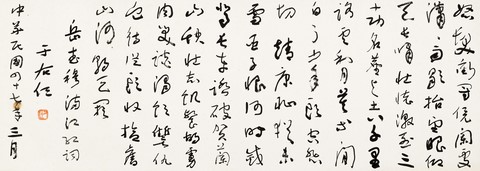 怒髮衝冠憑闌處
瀟瀟雨歇抬望眼仰
天長嘯壯懷激烈三
十功名塵與土八千里
路雲和月莫等閒
白了少年頭空悲
切靖康恥猶未
雪臣子恨何時滅
駕長車踏破賀蘭
山缺壯志飢餐胡虜
肉笑談渴飲仇
血待從頭收拾舊
山河朝天闕
岳武穆滿江紅詞
于右任
中華民國四十年三月